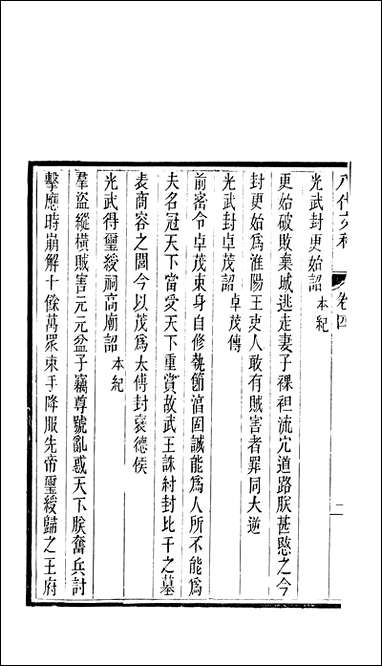 八代文粹 卷四 二
光武封更始詔 本紀
更始破敗棄城逃走妻子裸袒流宂道路朕甚愍之今
封更始爲淮陽王吏人敢有賊害者罪同大逆
光武封卓茂詔 卓茂傳
前密令卓茂束身自修執節淳固誠能爲人所不能爲
夫名冠天下當受天下重賞故武王誅紂封比干之墓
表商容之閭今以茂爲太傅封襃德侯
光武得璽綬祠高廟詔 本紀
羣盜縱橫賊害元元盆子竊尊號亂惑天下朕奮兵討
擊應時崩解十餘萬衆束手降服先帝璽綬歸之王府